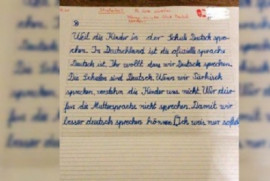 Weil die Kinder in der Schule Deutsch spre-
chen. In Deutschland ist die ofizielle sprache
Deutsch ist. Ihr wollt das wir Deutsch sprechen.
Die Schulen sind Deutsch. Wenn wir Türkisch
sprechen, verstehn die Kinder uns nicht. Wir dür-
fen die Muttersprache nicht sprechen. Damit wir
besser deutsch sprechen können. Ich weis nur